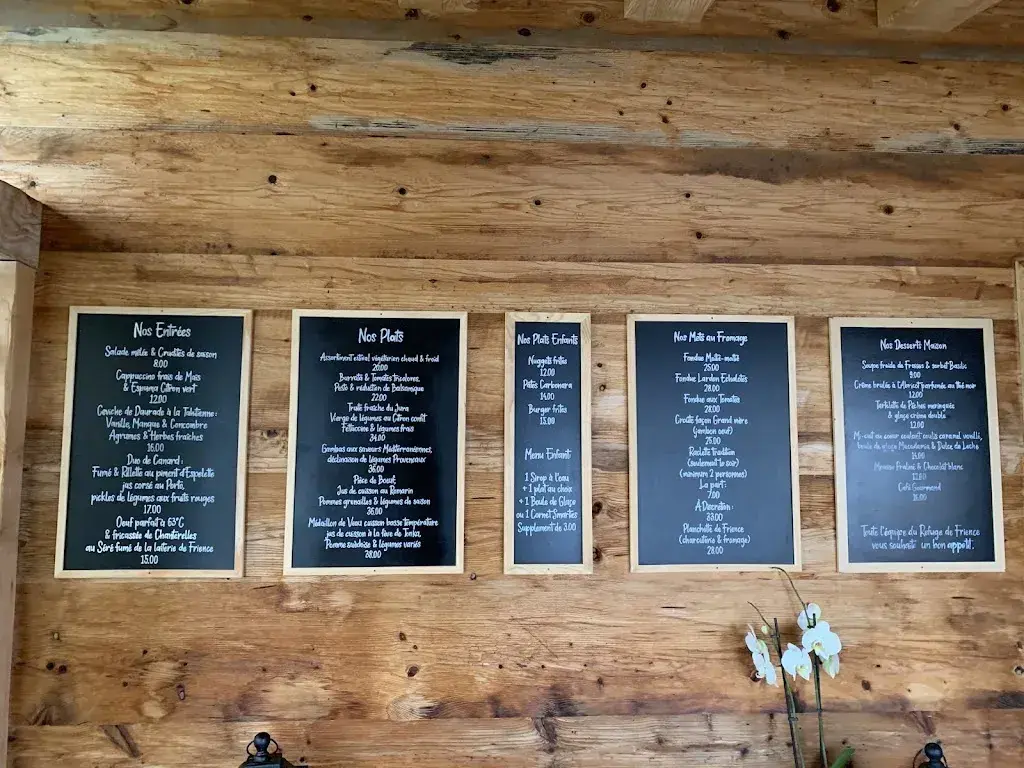 Nos Entrées
Salade mêlée & Crudités de saison
8.00
Cappuccino frais de Maïs
& Espuma Citron vert
12.00
Ceviche de Daurade à la Tahitienne:
Vanille, Mangue & Concombre
Agrumes & Herbes fraîches
16.00
Duo de Canard:
Fumé & Rillette au piment d'Espelette
jus corsé au Porto,
pickles de légumes aux fruits rouges
17.00
Oeuf parfait à 63°C
& fricassée de Chanterelles
au Séré fumé de la laiterie de Frience
15.00
Nos Plats
Assortiment estival végétarien chaud & froid
20.00
Burrata & Tomates tricolores,
Pesto & réduction de Balsamique
22.00
Truite fraîche du Jura
Vierge de légumes au Citron confit
Féttucine & légumes frais
34.00
Gambas aux saveurs Méditerranéennes,
déclinaison de légumes Provençaux
36.00
Pièce de Boeuf,
Jus de cuisson au Romarin
Pommes grenailles & légumes de saison
36.00
Médaillon de Veau cuisson basse température
jus de cuisson à la fève de Tonka,
Pomme suédoise & légumes variés
38.00
Nos Plats Enfants
Nuggets frites
12.00
Pâtes Carbonara
14.00
Burger frites
15.00
Menu Enfant
1 Sirop à l'eau
+ 1 plat au choix
+ 1 Boule de Glace
ou 1 Cornet Smarties
Supplement de 3.00
Nos Mets au Fromage
Fondue Moitié-moitié
25.00
Fondue Lardon Echalotes
28.00
Fondue aux Tomates
28.00
Croûte façon Grand mère
(jambon oeuf)
25.00
Raclette tradition
(seulement le soir)
(minimum 2 personnes)
La part:
7.00
A Discrétion:
33.00
Planchette de Frience
(charcuterie & fromage)
28.00
Nos Desserts Maison
Soupe froide de Fraises & sorbet Basilic
9.00
Crème brulée à l'Abricot parfumée au thé noir
12.00
Tartelette de Pêches meringuée
& glace crème double
12.00
Mi-cuit au coeur coulant coulis caramel vanillé,
boule de glace Macadamia & Dulce de Leche
Mousse Praliné & Chocolat blanc
Café Gourmand
Toute l'équipe du Refuge de Frience
vous souhaite un bon appétit.